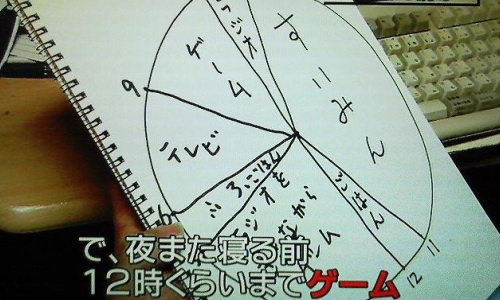 ラジオ
すいみん
ゲーム
9
テレビ
6
ふろ、ごはん
ラジオを
ながら
ム
ごはん
11
12
で、夜また寝る前
12時ぐらいまでゲーム